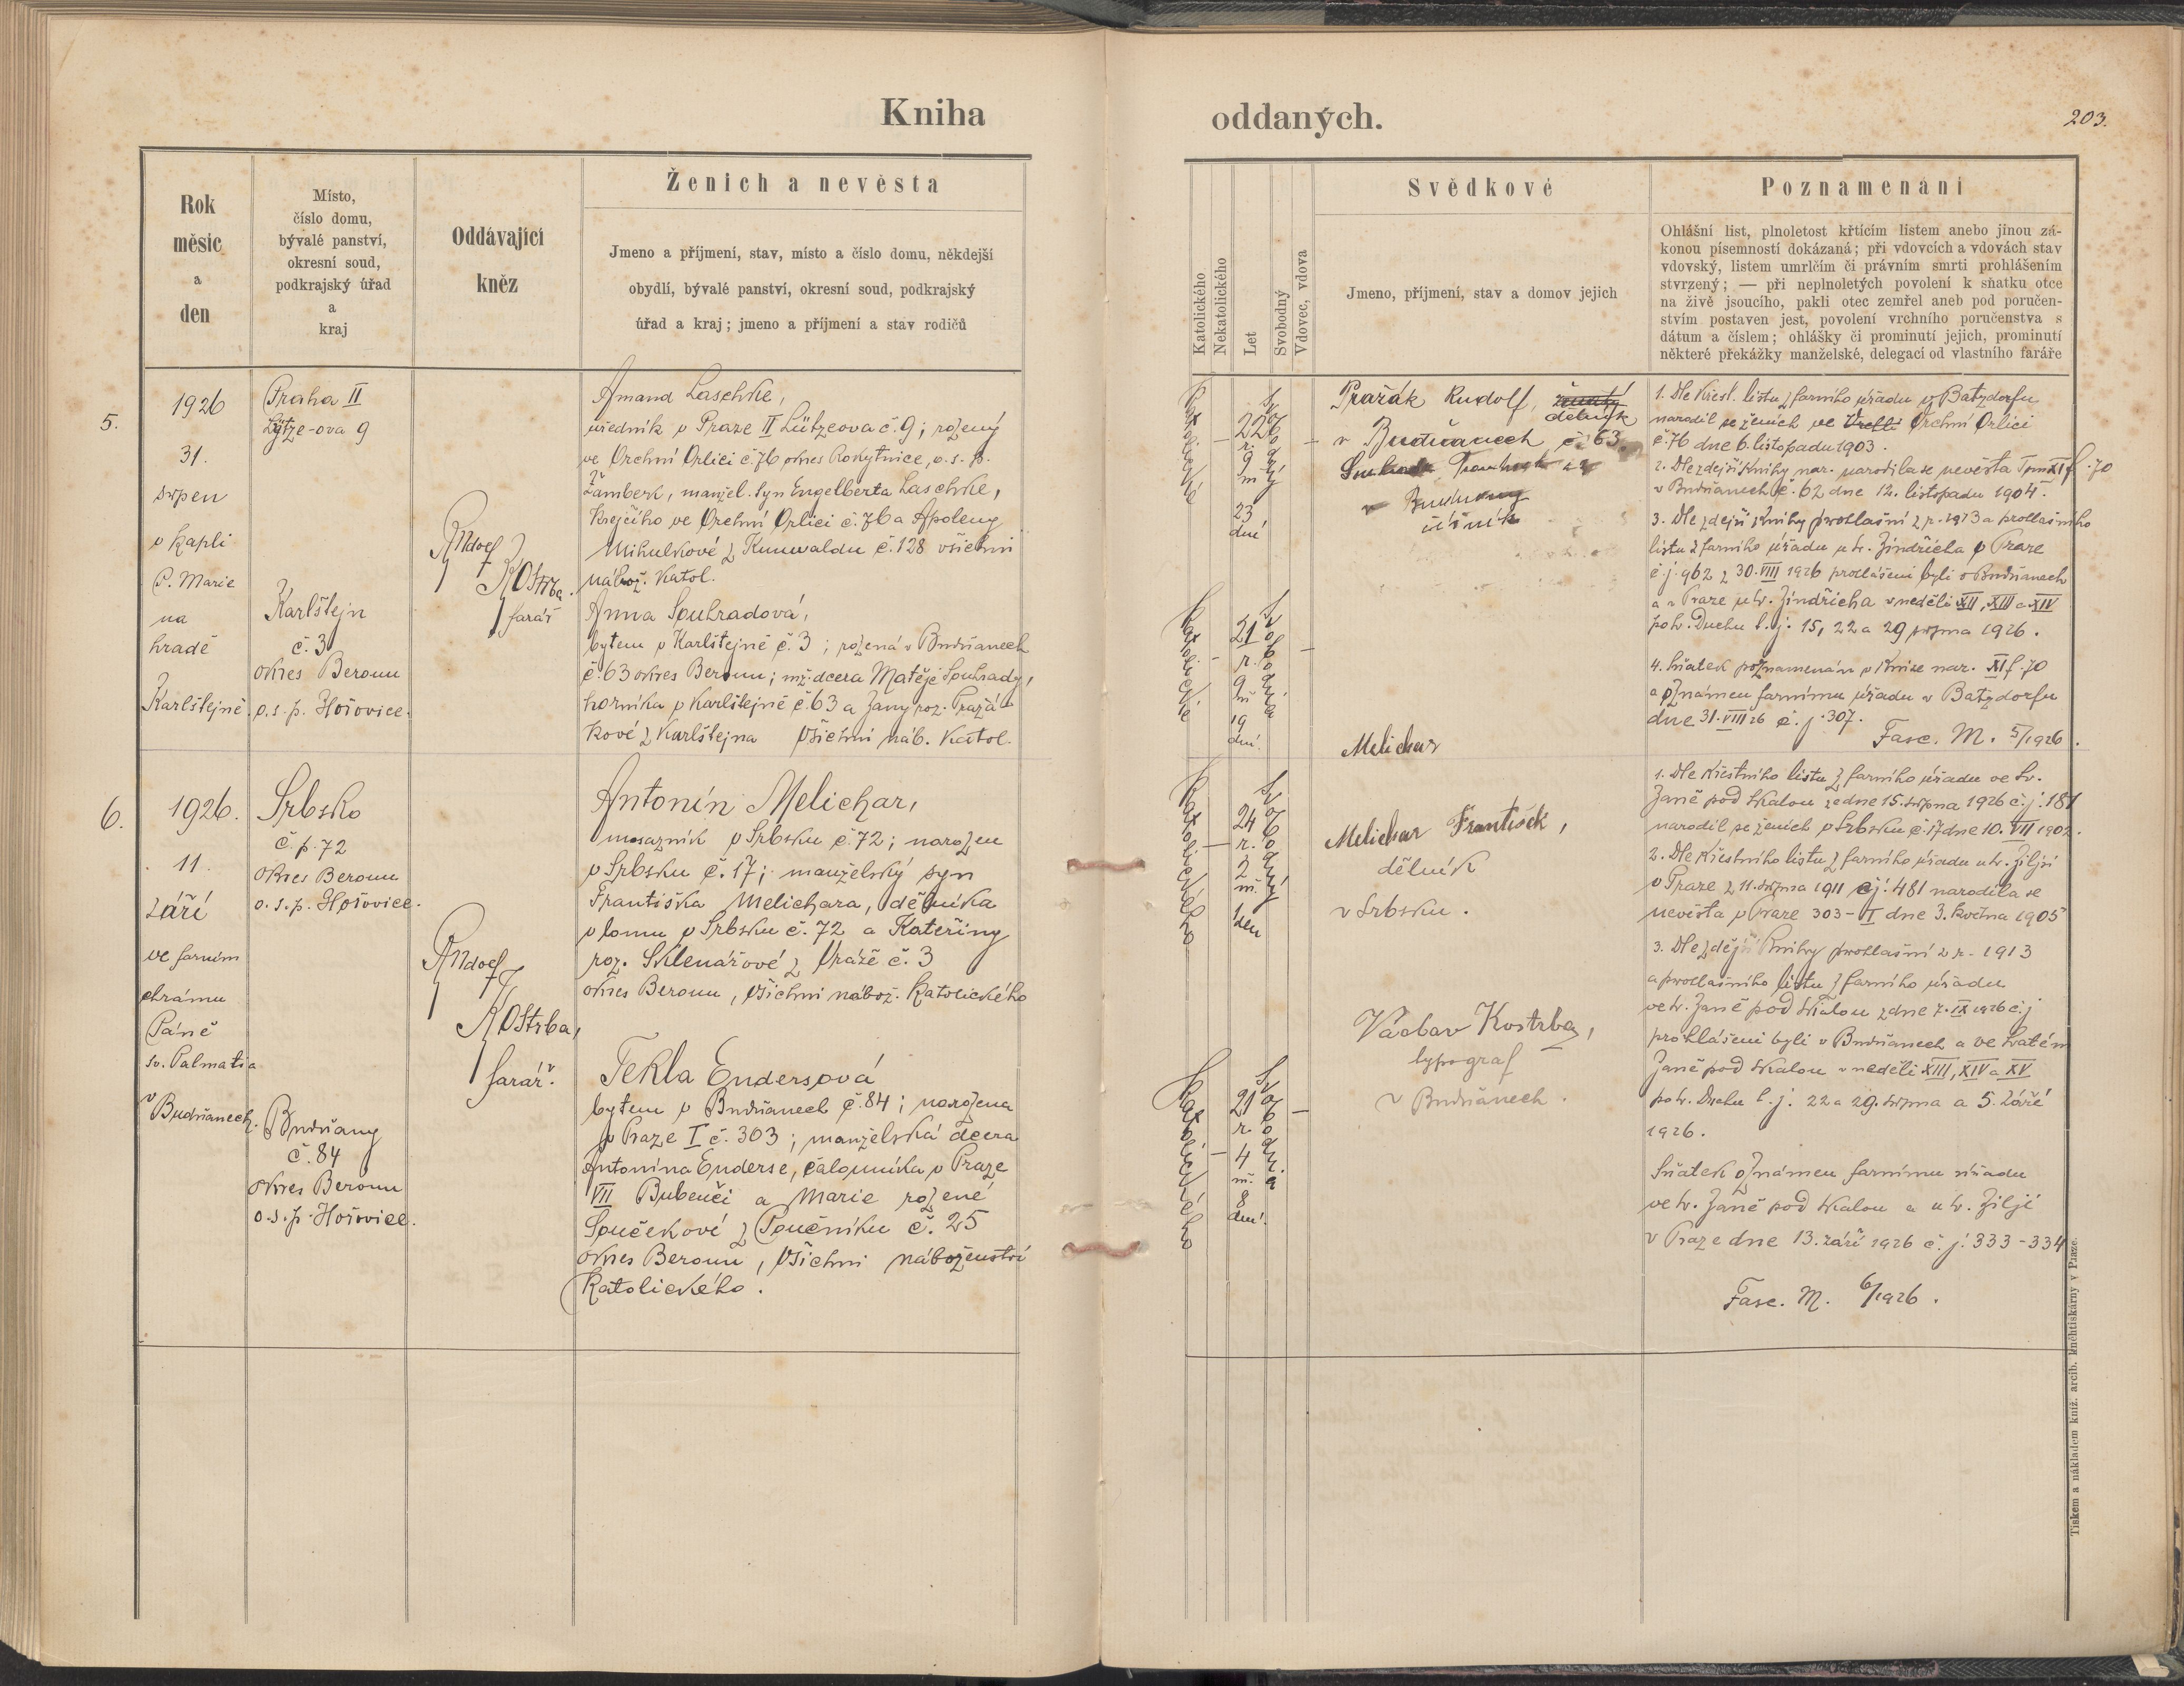 Kniha
oddaných.
203.
Rok
měsíc
a
den
Místo,
číslo domu,
bývalé panství,
okresní soud,
podkrajský úřad
a
kraj
Oddávající
kněz
Ženich a nevěsta
Jmeno a příjmení, stav, místo a číslo domu, někdejší
obydlí, bývalé panství, okresní soud, podkrajský
úřad a kraj; jmeno a příjmení a stav rodičů
Katolického
Nekatolického
Let
Svobodný
Vdovec, vdova
Svědkové
Jmeno, příjmení, stav a domov jejich
Poznamenání
Ohlášní list, plnoletost křticím listem anebo jinou zá-
konou písemností dokázaná; při vdovcích a vdovách stav
vdovský, listem umrlčím či právním smrti prohlášením
stvrzený; — při neplnoletých povolení k sňatku otce
na živě jsoucího, pakli otec zemřel aneb pod poručen-
stvím postaven jest, povolení vrchního poručenstva s
dátum a číslem; ohlášky či prominutí jejich, prominutí
některé překážky manželské, delegací od vlastního faráře
5.
1926
31.
srpen
v kapli
P. Marie
na
hradě
Karlštejně.
Praha II
Lützeova 9
Karlštejn
č. 3
okres Beroun
o.s.p. Hořovice.
Rudolf
Kostrba.
farář
Amand Laschke,
úředník v Praze II Lützeova č. 9; rozený
ve Vrchní Orlici č. 76 okres Rokytnice, o.s.p.
Žamberk, manžel. syn Engelberta Laschke,
krejčího ve Vrchní Orlici č. 76 a Apoleny
Mihulkové z Kunwaldu č. 128 všichni
nábož. katol.
Anna Souhradová,
bytem v Karlštejně č. 3; rozená v Budňanech
č. 63 okres Beroun; mž. dcera Matěje Souhrady,
horníka v Karlštejně č. 63 a Jany roz. Pražá-
kové z Karlštejna všichni náb. katol.
Katolické
22
r.
9
m
23
dní
Svobodný
Katolické
21
r.
9
m
19
dní.
Svobodná
Pražák Rudolf,
dělník
v Budňanech č. 63
v Budňany
číšník
1. Dle křest. listu z farního úřadu v Batzdorfu
narodil se ženich ve Vrchní Orlici
č. 76 dne 6. listopadu 1903.
2. Dle zdejší knihy nar. narodila se nevěsta Tom XI f. 70
v Budňanech č. 62 dne 12. listopadu 1904.
3. Dle zdejší knihy prohlašní z r. 1913 a prohlašního
listu z farního úřadu u sv. Jindřicha v Praze
č.j. 962 z 30. VIII 1926 prohlášeni byli v Budňanech
a v Praze u sv. Jindřicha v neděli XII, XIII a XIV
po sv. Duchu t.j. 15, 22 a 29 srpna 1926.
4. Sňatek poznamenán v knize nar. XI f. 70
a oznámen farnímu úřadu v Batzdorfu
dne 31. VIII 26 č. j. 307.
Fasc. M. 5/1926.
6.
1926.
11.
září
ve farním
chrámu
Páně
sv. Palmatia
v Budňanech.
Srbsko
č.p. 72
okres Beroun
o.s.p. Hořovice.
Budňany
č. 84
okres Beroun
o.s.p. Hořovice.
Rudolf
Kostrba,
farář.
Antonín Melichar,
mosazník v Srbsku č. 72; narozen
v Srbsku č. 17; manželský syn
Františka Melichara, dělníka
v lomu v Srbsku č. 72 a Kateřiny
roz. Sklenářové z Vráže č. 3
okres Beroun, všichni nábož. katolického
Tekla Endersová
bytem v Budňanech č. 84; narozena
v Praze I č. 303; manželská dcera
Antonína Enderse, čalouníka v Praze
VII Bubenči a Marie rozené
Součekové z Poučníku č. 25
okres Beroun, všichni náboženství
katolického.
Katolického
24
r.
2
m.
1
den
Svobodný
Katolického
21
r.
4
m.
8
dní.
Svobodná
Melichar
Melichar František,
dělník
v Srbsku.
Václav Kostrba,
typograf
v Budňanech.
1. Dle křestního listu z farního úřadu ve Sv.
Janě pod Skalou ze dne 15. srpna 1926 č.j. 181
narodil se ženich v Srbsku č. 17 dne 10. VII 1902.
2. Dle křestního listu z farního úřadu u sv. Jiljí
v Praze z 11. srpna 1911 čj. 481 narodila se
nevěsta v Praze 303-I dne 3. května 1905
3. Dle zdejší knihy prohlašní z r. 1913
a prohlašního listu z farního úřadu
ve sv. Janě pod Skalou z dne 7. IX 1926 č.j
prohlášeni byli v Budňanech a ve Svatém
Janě pod Skalou v neděli XIII, XIV a XV
po sv. Duchu t.j. 22 a 29. srpna a 5. září
1926.
Sňatek oznámen farnímu úřadu
ve sv. Janě pod Skalou a u sv. Jiljí
v Praze dne 13. září 1926 č.j. 333-334
Fasc. M. 6/1926.
Tiskem a nákladem kníž. arcib. knihtiskárny v Praze.